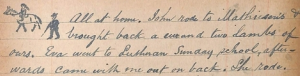 All at home. John rode to Mathieson's &
brought back a wound two lambs of
ours. Eva went to Luthnan Sunday school, after-
wards came with me out on back. She rode.